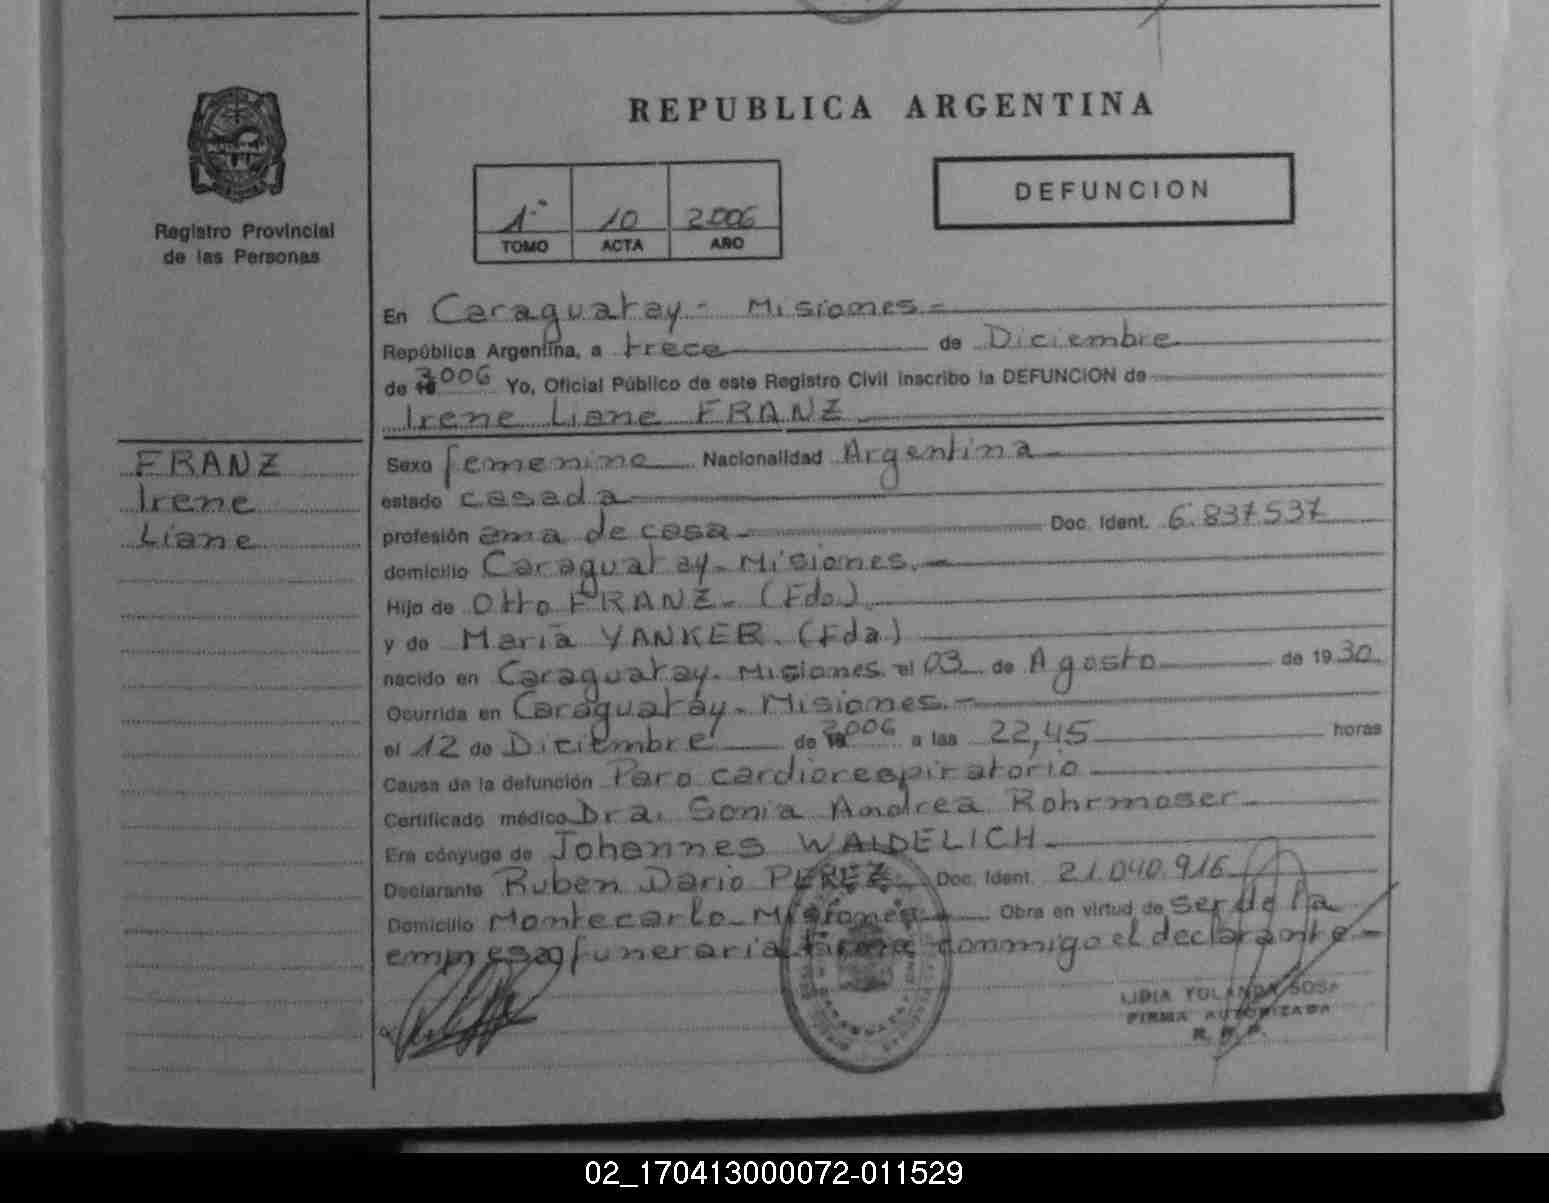 REPUBLICA ARGENTINA
Registro Provincial
de las Personas
1º 10 2006
TOMO ACTA AÑO
DEFUNCION
FRANZ
Irene
Liane
En Caraguatay - Misiones.-
República Argentina, a trece de Diciembre
de 2006 Yo, Oficial Público de este Registro Civil inscribo la DEFUNCION de
Irene Liane FRANZ
Sexo femenino Nacionalidad Argentina
estado casada
profesión ama de casa Doc. Ident. 6.837.537
domicilio Caraguatay - Misiones.
Hijo de Otto FRANZ - (Fdo).
y de María YANKER. (Fda)
nacido en Caraguatay. Misiones. el 03 de Agosto de 1930
Ocurrida en Caraguatay - Misiones.-
el 12 de Diciembre de 2006 a las 22,45 horas
Causa de la defunción Paro cardiorespiratorio
Certificado médico Dra. Sonia Andrea Rohrmoser
Era cónyuge de Johannes WAIDELICH
Declarante Ruben Dario PEREZ Doc. Ident. 21.040.916
Domicilio Montecarlo - Misiones Obra en virtud de ser de la
empresa funeraria firma conmigo el declarante.-
LIDIA YOLANDA SOSA
FIRMA AUTORIZADA
R. P. P.
02_170413000072-011529